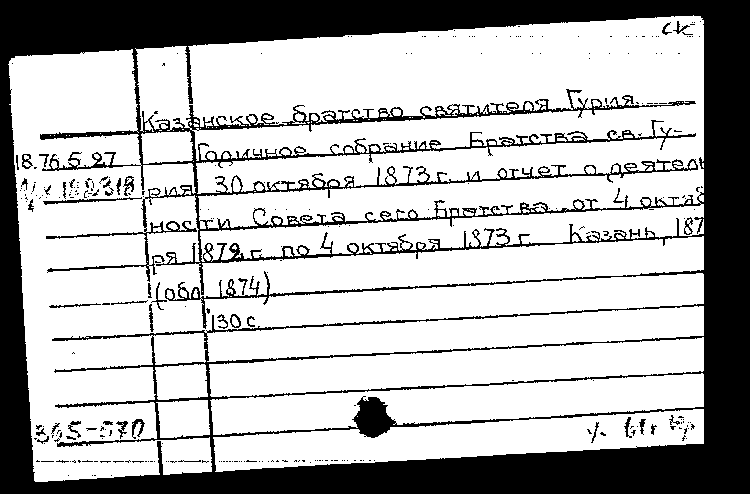 СК
Казанское братство святителя Гурия.
18.76.5.27 Годичное собрание Братства св. Гу-
рия 30 октября 1873 г. и отчет о деятель
ности Совета сего Братства от 4 октяб
ря 1872 г. по 4 октября 1873 г. Казань, 187
(обл. 1874)
130 с.
365-570